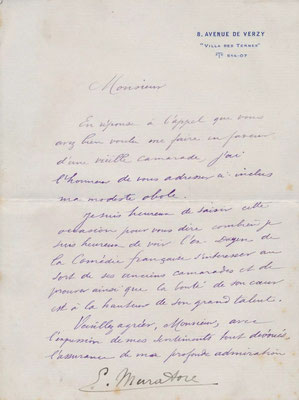 8, AVENUE DE VERZY
"VILLA DES TERNES"
Monsieur
En réponse à l'appel que vous
avez bien voulu me faire en faveur
d'une vieille camarade, j'ai
l'honneur de vous adresser ci-inclus
ma modeste obole.
Je suis heureux de saisir cette
occasion pour vous dire combien je
suis heureux de voir l'ex-Doyen de
la Comédie française s'intéresser au
sort de ses anciens camarades et de
prouver ainsi que la bonté de son cœur
est à la hauteur de son grand talent.
Veuillez agréer, Monsieur, avec
l'expression de mes sentiments tout dévoués,
l'assurance de ma profonde admiration
L. Muratore